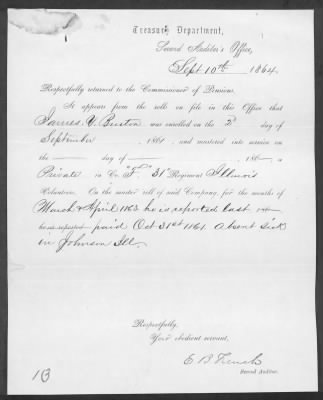 Treasury Department,
Second Auditor's Office,
Sept 10th 1864
Respectfully returned to the Commissioner of Pensions.
It appears from the rolls on file in this Office that
James Y. Buston was enrolled on the 2d day of
September 1861 and mustered into service on
the day of 186 a
Private in Co. "F" 31st Regiment Illinois
Volunteers. On the muster roll of said Company, for the months of
March & April 1863 he is reported last
he is reported paid Oct 31st 1861. Absent Sick
in Johnson Ill.
Respectfully,
Your obedient servant,
E B French
Second Auditor.